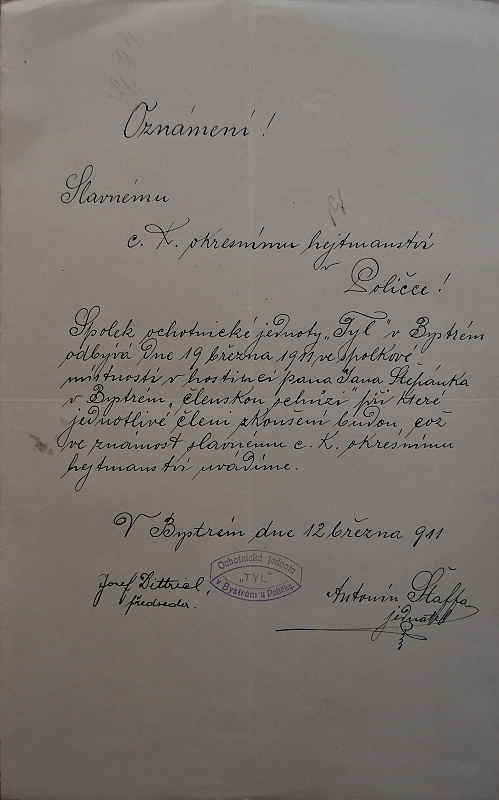 Oznámení!
Slavnému
c. K. okresnímu hejtmanství
v
Poličce!
Spolek ochotnické jednoty „Tyl" v Bystrém
odbývá dne 19 března 1911 ve spolkové
místnosti v hostinci pana Jana Štěpánka
v Bystrém, „členskou schůzi" při které
jednotliví členi zkoušeni budou, což
ve známost slavnému c. K. okresnímu
hejtmanství uvádíme.
V Bystrém dne 12 března 911
Ochotnická jednota
„TYL"
v Bystrém u Poličky.
Josef Dittrich
předseda.
Antonín Štaffa
jednatel